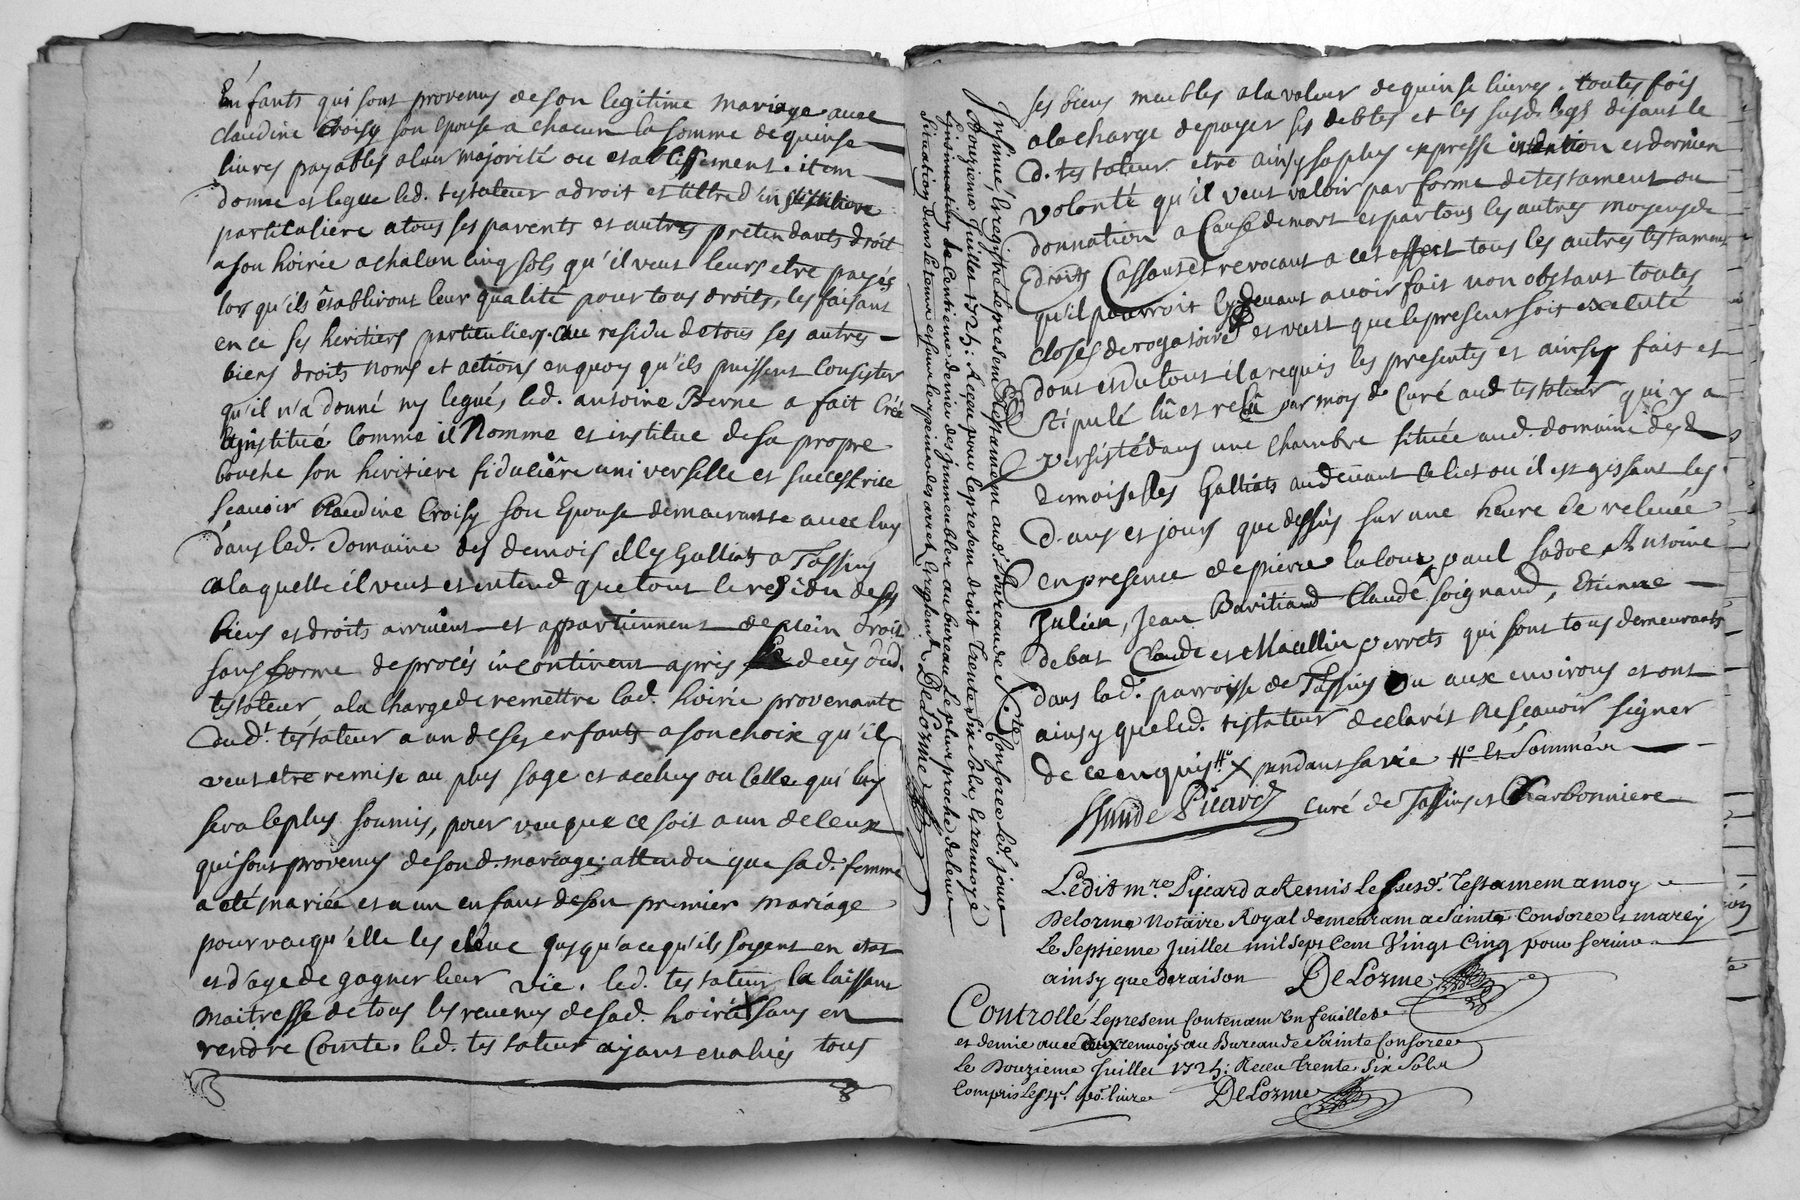 Enfants qui sont provenus de son legitime mariage avec
claudine Croisy son epouse a chacun la somme de quinse
livres payables a leur majorité ou etablissement. item
donne et legue led. testateur a droit et tiltre d'institution
particaliere a tous ses parents et autres pretendants droit
a son hoirie a chacun cinq sols qu'il veut leurs etre payés
lors qu'ils établiront leur qualité pour tous droits, les faisant
en ce ses heritiers particuliers. au residu de tous ses autres
biens droits noms et actions en quoy qu'ils puissent Consister
qu'il n'a donné ny legué, led. antoine Berne a fait Créé
institué Comme il Nomme et institue de sa propre
bouche son heritiere fiduciêre universelle et successtrice
scavoir Claudine Croisy son Epouse demeurante avec luy
dans led. Domaine des demoiselles Galliats a Tassins
a laquelle il veut et entend que tout le residu de ses
biens et droits arrivent et appartiennent de plein droit
sans forme de procés incontinent apris le decés dud.
testateur a la charge de remettre lad. hoirie provenante
dud. testateur a un de ses enfants a son choix qu'il
veut etre remise au plus sage et a celuy ou Celle qui luy
sera le plus soumis, pour veu que ce soit a un de ceux
qui sont provenus de son d. mariage; attendu que sad. femme
a eté mariée et a un enfant de son premier mariage
pour veu qu'elle les eleve jusqu'a ce qu'ils soyent en etat
et d'age de gagner leur vie. led. testateur la laissant
maitresse de tous les revenus de sad. hoirie sans en
rendre Comte. led. testateur ayant evalués tous
Insinué, & registré le present testament aud. Bureau de Ste Consorce led. jour
Douzieme Juillet 1725: Reçu pour le present droit Trente six sols, & renvoyé
l'insinuation de Centieme denier des immeubles au bureau le plus proche de leur
situation dans le temps et sous les peines des arrets & reglemt. DeLorme
ses biens meubles a la valeur de quinse livres. toutes fois
a la charge de payer ses debtes et les susd. legs disant le
d. testateur etre ainsy sa plus expresse intention et derniere
volonté qu'il veut valoir par forme de testament ou
donnation a Cause de mort et par tous les autres moyens de
droits Cassant et revocant a cet effect tous les autres testament
qu'il pourroit Cy devant avoir fait non obstant toutes
closes derogatoires et veut que le present soit executé
dont et du tout il a requis les presentes et ainsy fait et
stipulé lû et relû par moy d. Curé aud. testateur qui y a
persisté dans une chambre située aud. domaine desd.
demoiselles Galliats au devant de liet ou il est gissant les
d. ans et jours que dessus sur une heure de relevée
en presence de pierre Latour, paul Sadoe Antoine
Julien, Jean Baritiand Claude Soignard, Etienne
debat Claude et Macllin perrets qui sont tous demeurants
dans lad. parroisse de Tassins ou aux environs et ont
ainsy que led. testateur declarés ne sçavoir signer
de ce enquis # X pendant sa vie # et sommés
Claude Picard curé de Tassins et Charbonniere
Ledit mre. Picard a Remis le susd. Testament a moy
Delorme Notaire Royal demeurant a Sainte Consorce & marcy
Le Septieme Juillet mil sept Cent Vingt Cinq pour servir
ainsy que de raison DeLorme
Controllé le present Contenant Un feuillet
et demie avec deux renvoys au Bureau de Sainte Consorce
Le Douzieme Juillet 1725: Receu Trente six Sols
Compris les 4s. po. livre DeLorme